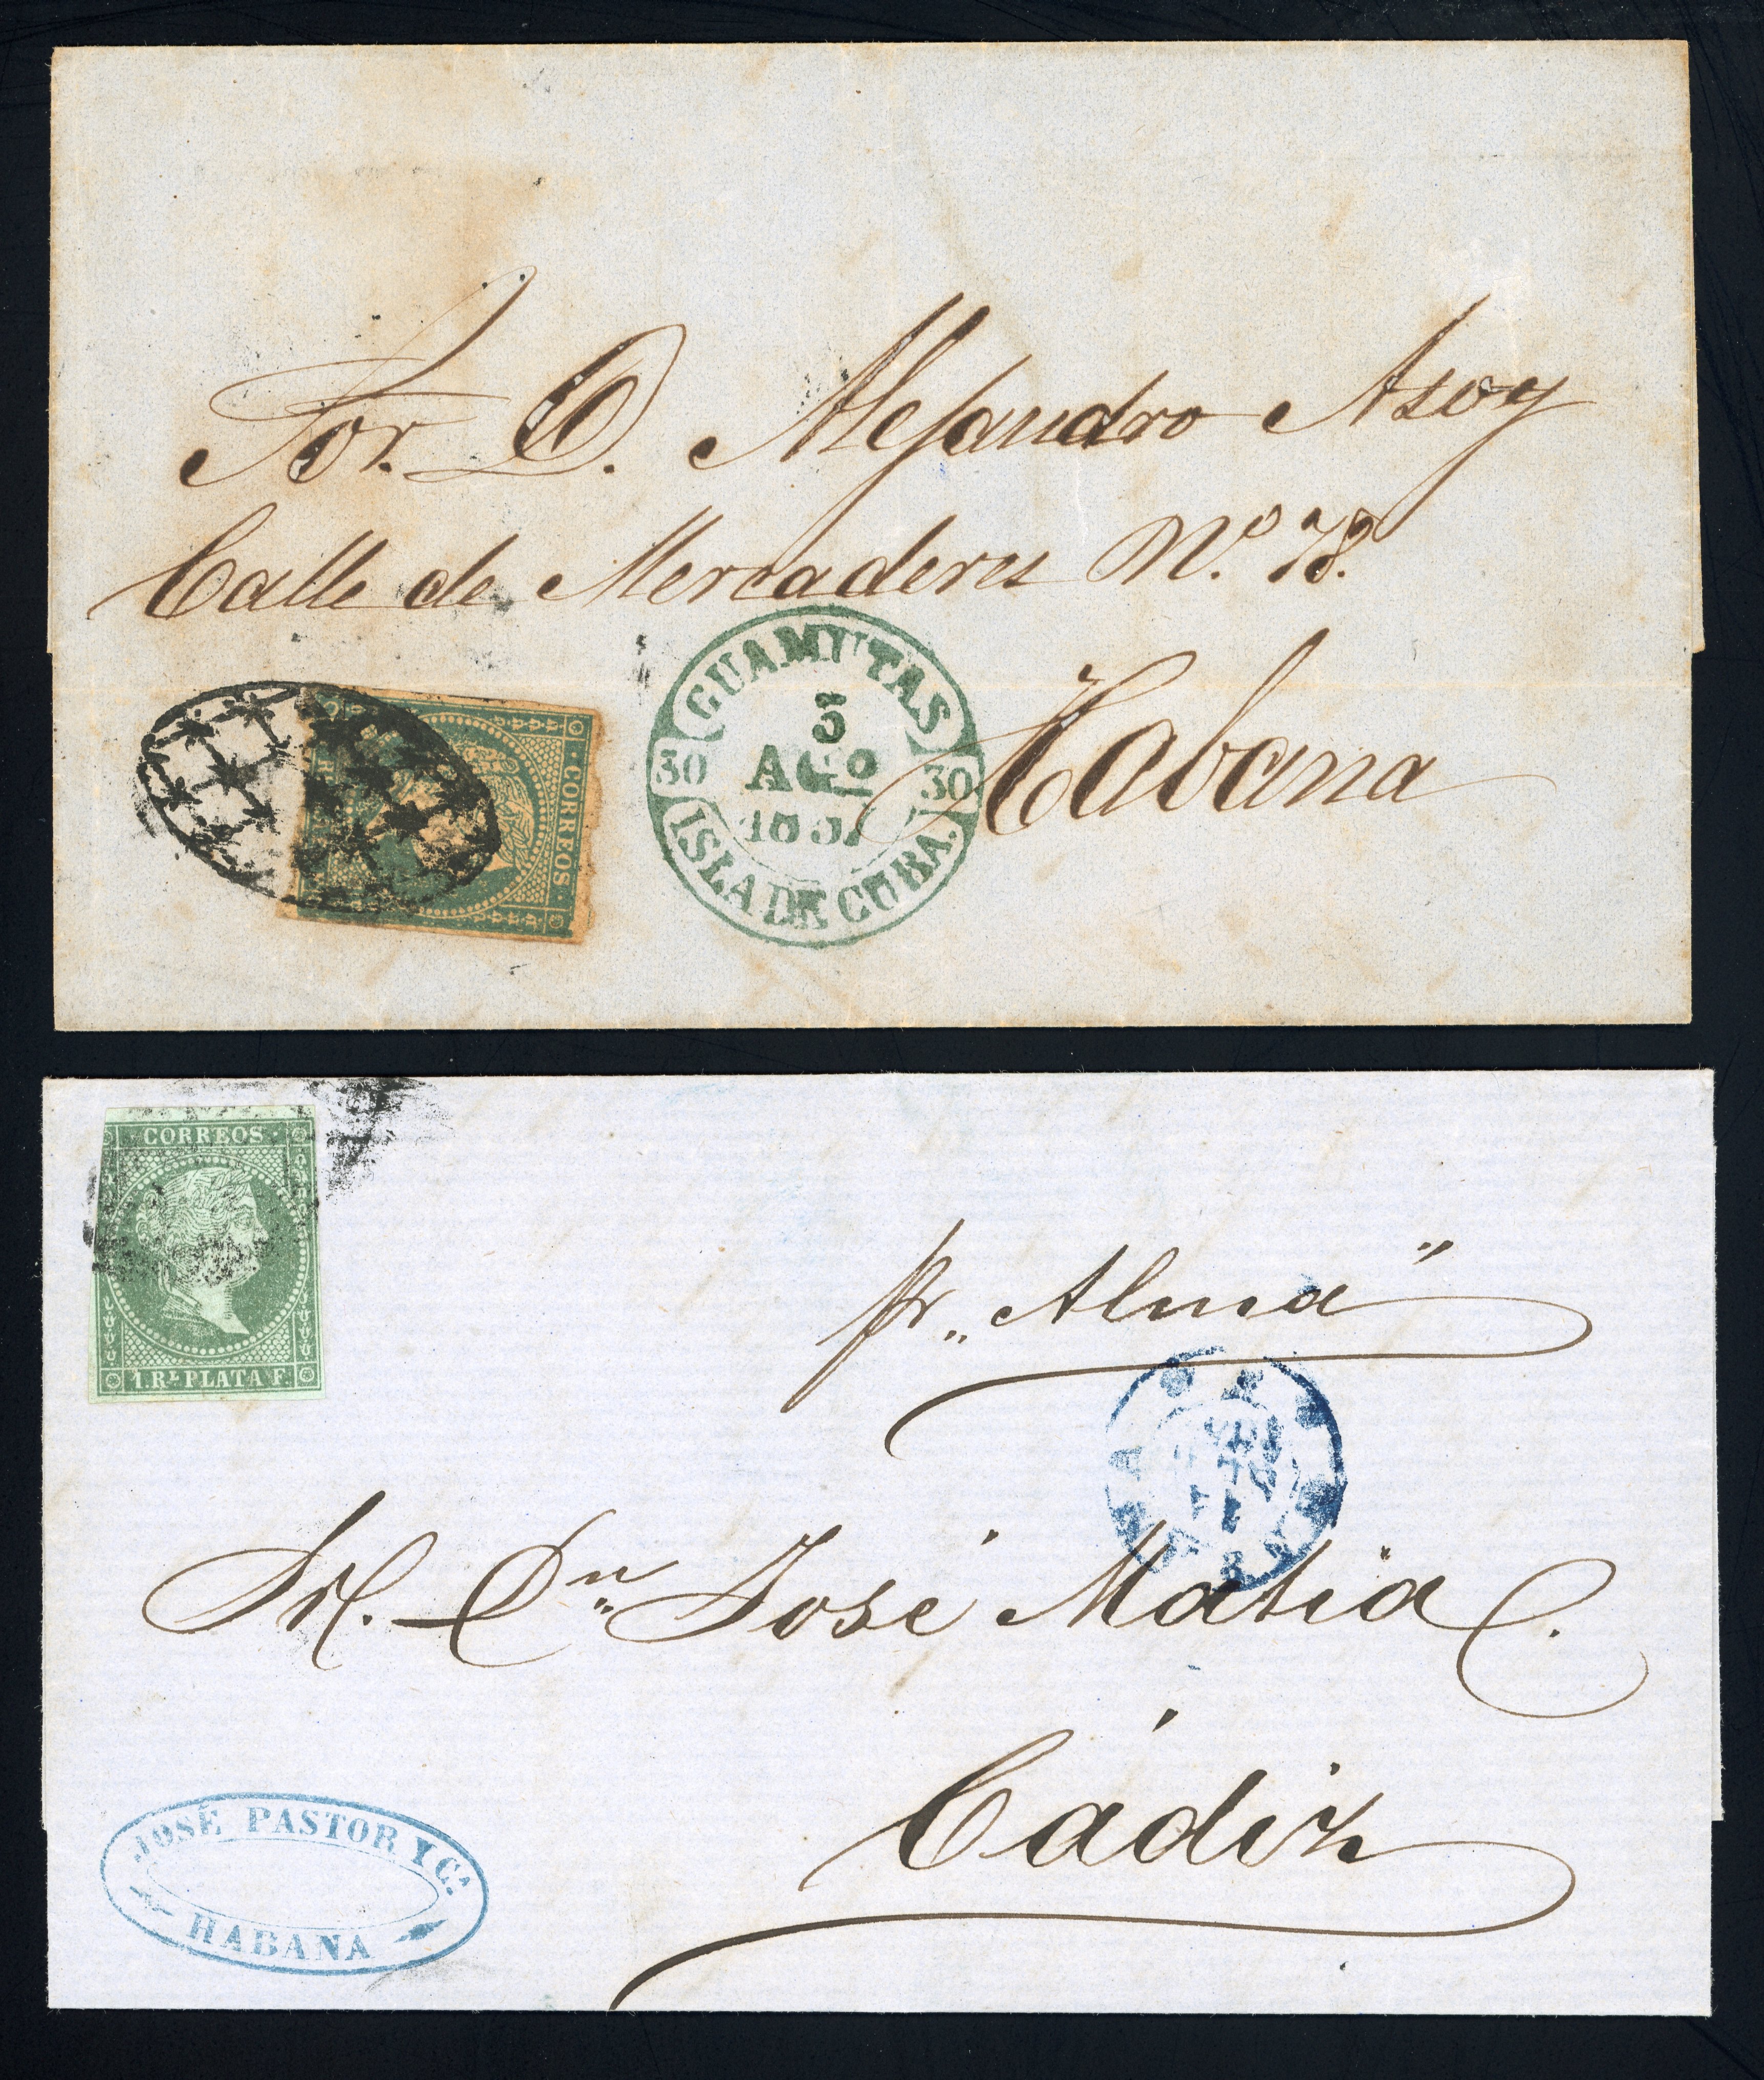 Sor. D. Alejandro Asoy
Calle de Mercaderes Nº. 78.
Habana
GUAMUTAS
5
AGO
30 30
ISLA DE CUBA.
CORREOS.
CORREOS
1.Rˡ PLATA F.
pr „Alma"
Sr. Dn José Matia C.
Cádiz
JOSÉ PASTOR Y Cª.
HABANA